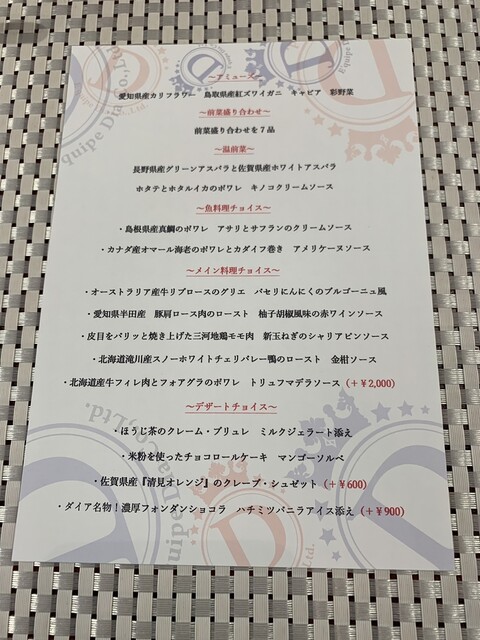 ～アミューズ～
愛知県産カリフラワー　鳥取県産紅ズワイガニ　キャビア　彩野菜
～前菜盛り合わせ～
前菜盛り合わせを７品
～温前菜～
長野県産グリーンアスパラと佐賀県産ホワイトアスパラ
ホタテとホタルイカのポワレ　キノコクリームソース
～魚料理チョイス～
・島根県産真鯛のポワレ　アサリとサフランのクリームソース
・カナダ産オマール海老のポワレとカダイフ巻き　アメリケーヌソース
～メイン料理チョイス～
・オーストラリア産牛リブロースのグリエ　パセリにんにくのブルゴーニュ風
・愛知県半田産　豚肩ロース肉のロースト　柚子胡椒風味の赤ワインソース
・皮目をパリッと焼き上げた三河地鶏モモ肉　新玉ねぎのシャリアピンソース
・北海道滝川産スノーホワイトチェリバレー鴨のロースト　金柑ソース
・北海道産牛フィレ肉とフォアグラのポワレ　トリュフマデラソース（＋￥2,000）
～デザートチョイス～
・ほうじ茶のクレーム・ブリュレ　ミルクジェラート添え
・米粉を使ったチョコロールケーキ　マンゴーソルベ
・佐賀県産『清見オレンジ』のクレープ・シュゼット（＋￥600）
・ダイア名物！濃厚フォンダンショコラ　ハチミツバニラアイス添え（＋￥900）